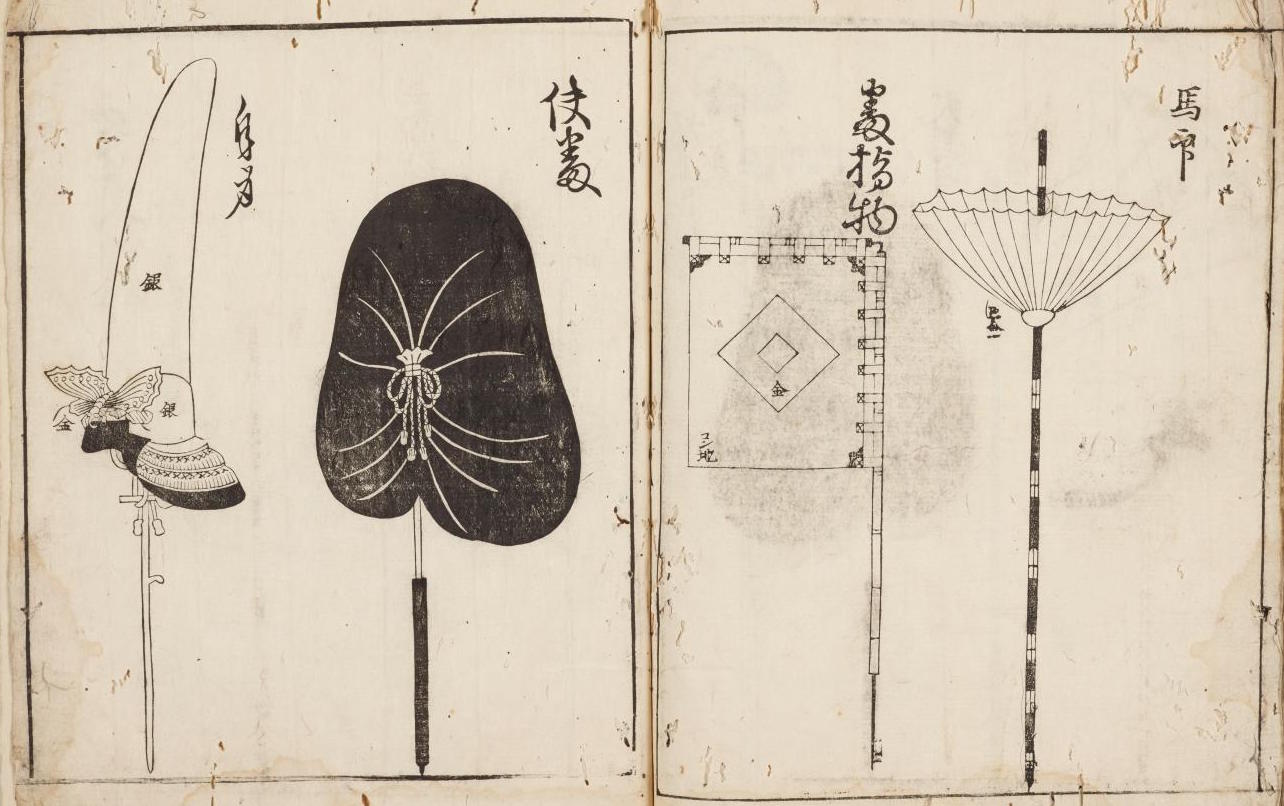 馬印
番指物
金
コン地
使番
銀
銀
金